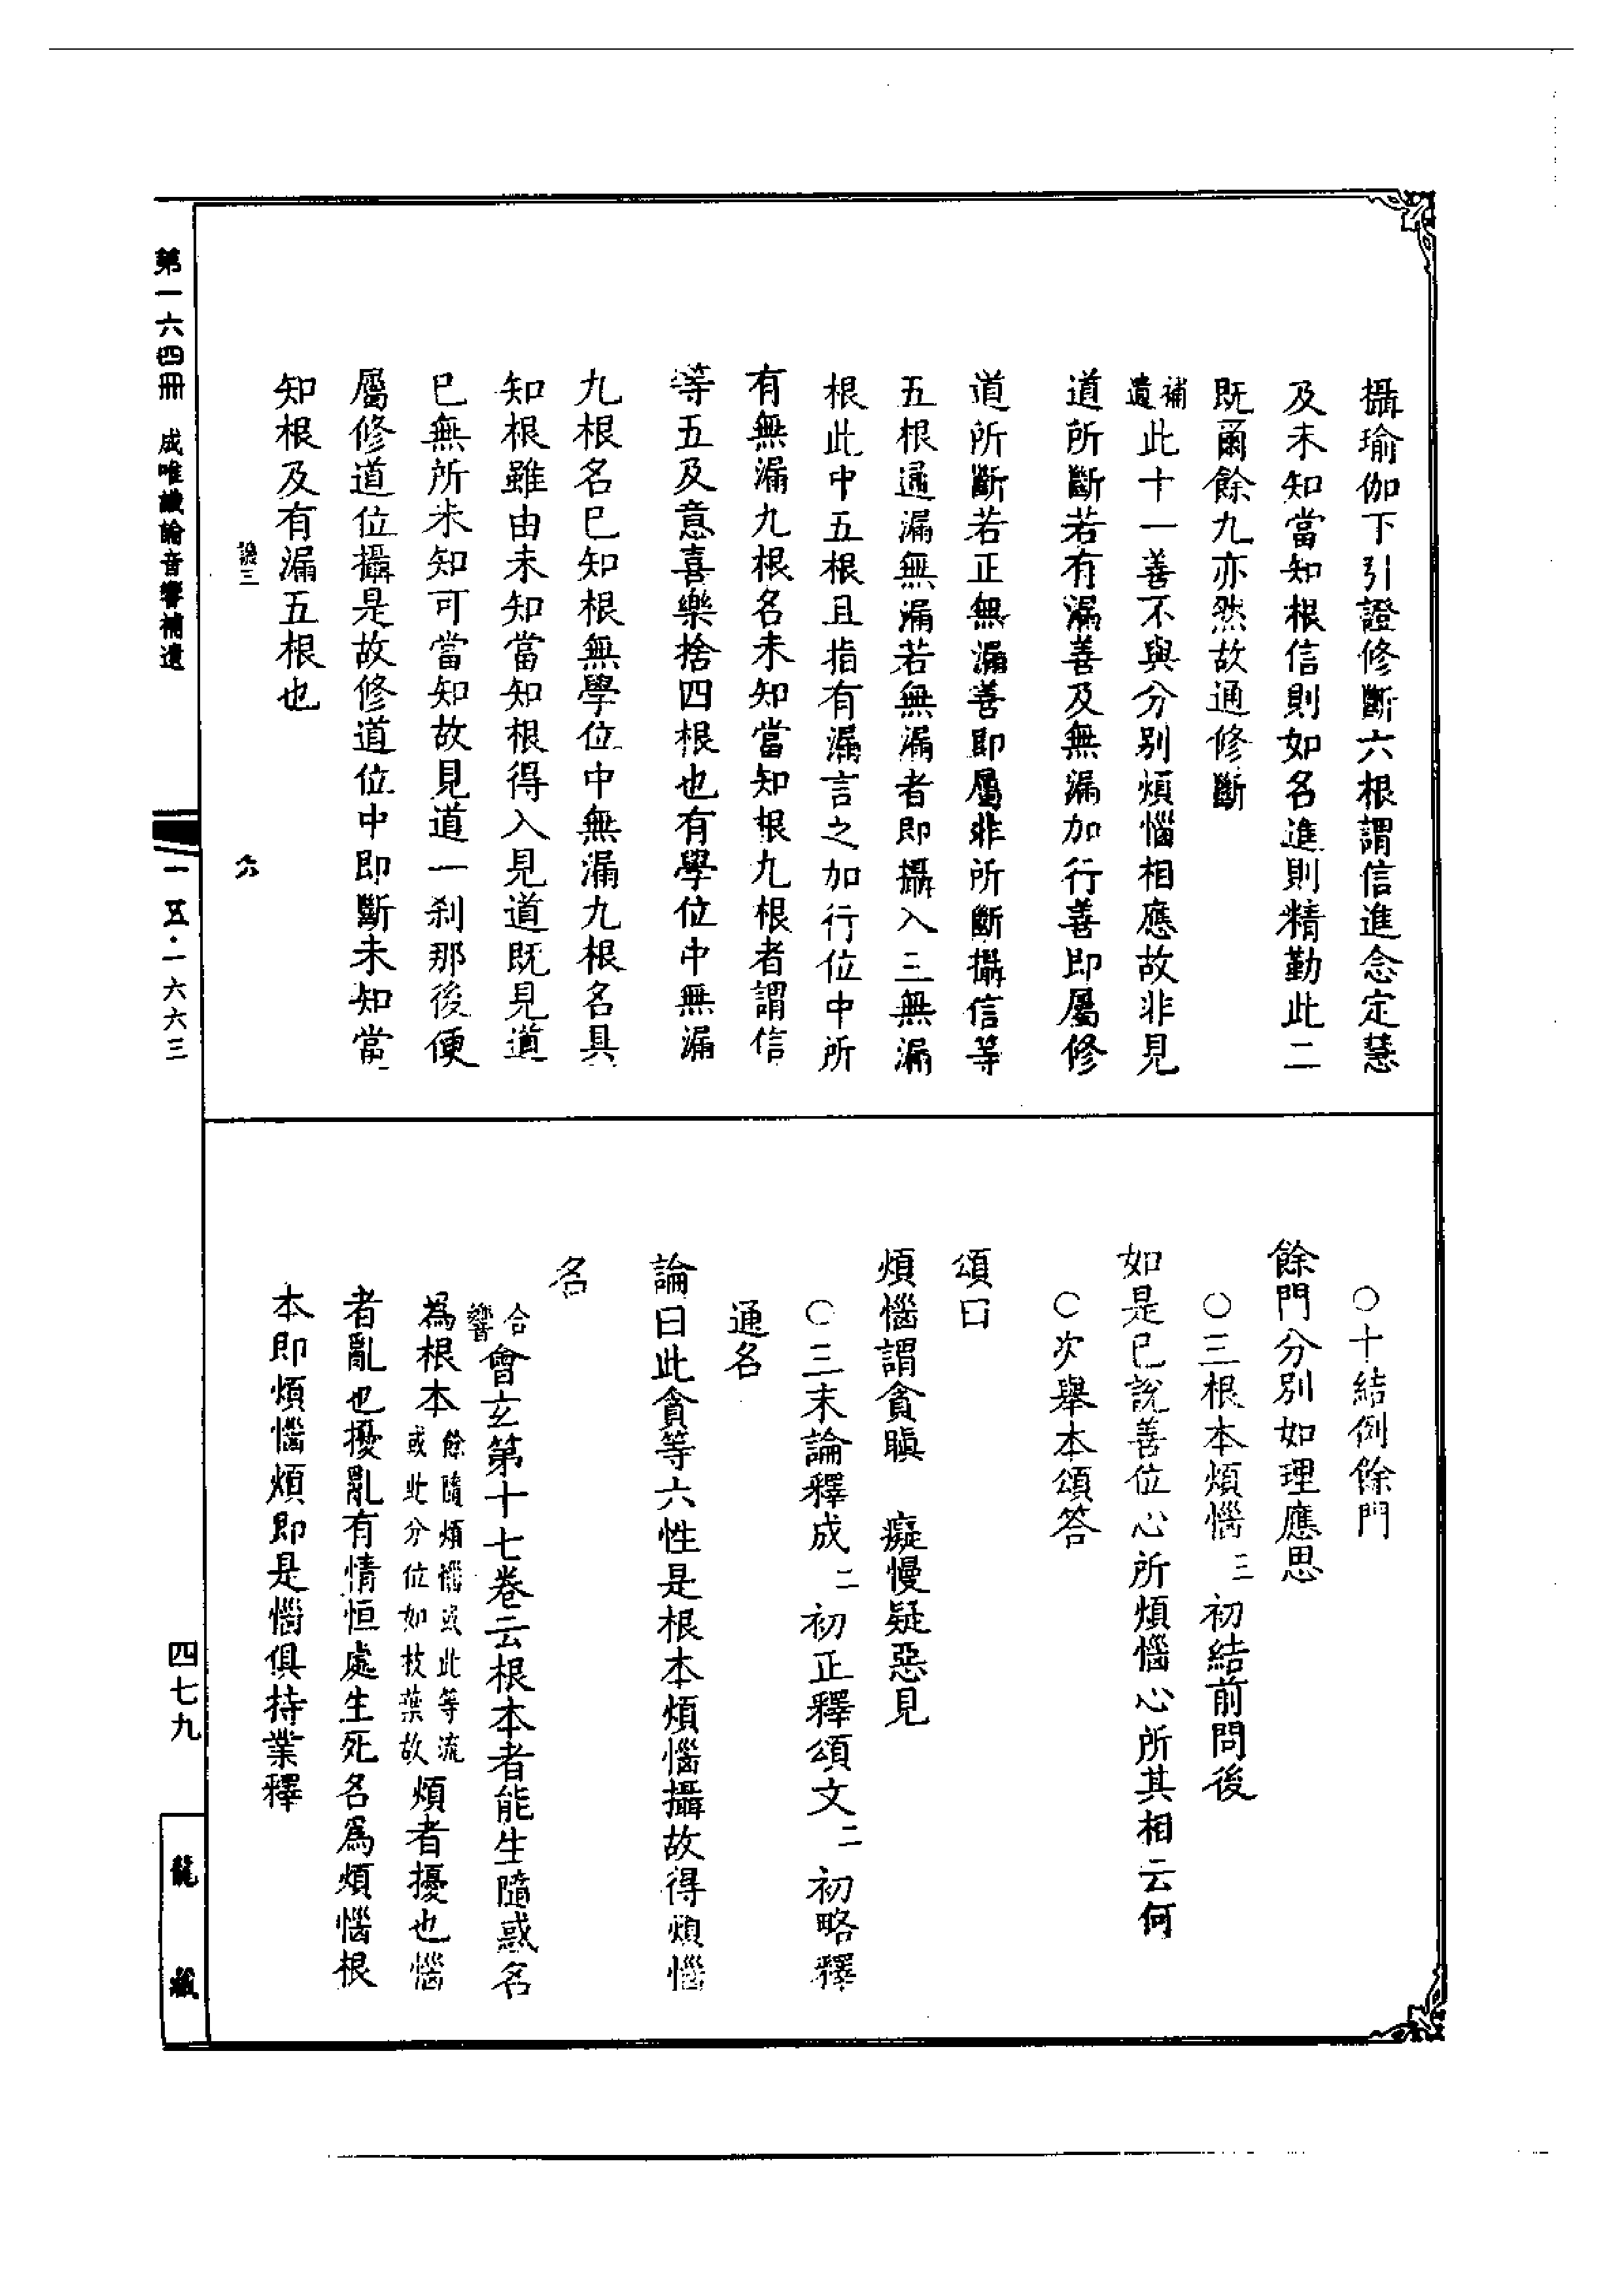 攝瑜伽下引證修斷六根謂信進念定慧
及未知當知根信則如名進則精勤此二
既爾餘九亦然故通修斷
補遺此十一善不與分別煩惱相應故非見
道所斷若有漏善及無漏加行善即屬修
道所斷若正無漏善即屬非所斷攝信等
五根通漏無漏若無漏者即攝入三無漏
根此中五根且指有漏言之加行位中所
有無漏九根名未知當知根九根者謂信
等五及意喜樂捨四根也有學位中無漏
九根名已知根無學位中無漏九根名具
知根雖由未知當知根得入見道既見道
已無所未知可當知故見道一剎那後便
屬修道位攝是故修道位中即斷未知當
知根及有漏五根也
譏三
六
○十結例餘門
餘門分別如理應思
○三根本煩惱三初結前問後
如是已說善位心所煩惱心所其相云何
○次舉本頌答
頌曰
煩惱謂貪瞋 癡慢疑惡見
○三末論釋成二初正釋頌文二初略釋
通名
論曰此貪等六性是根本煩惱攝故得煩惱
名
合響會玄第十七卷云根本者能生隨惑名
為根本餘隨煩惱或此等流或此分位如枝葉故煩者擾也惱
者亂也擾亂有情恒處生死名為煩惱根
本即煩惱煩即是惱俱持業釋
第一六四冊 成唯識論音響補遺
一五·一六六三
四七九
龍藏